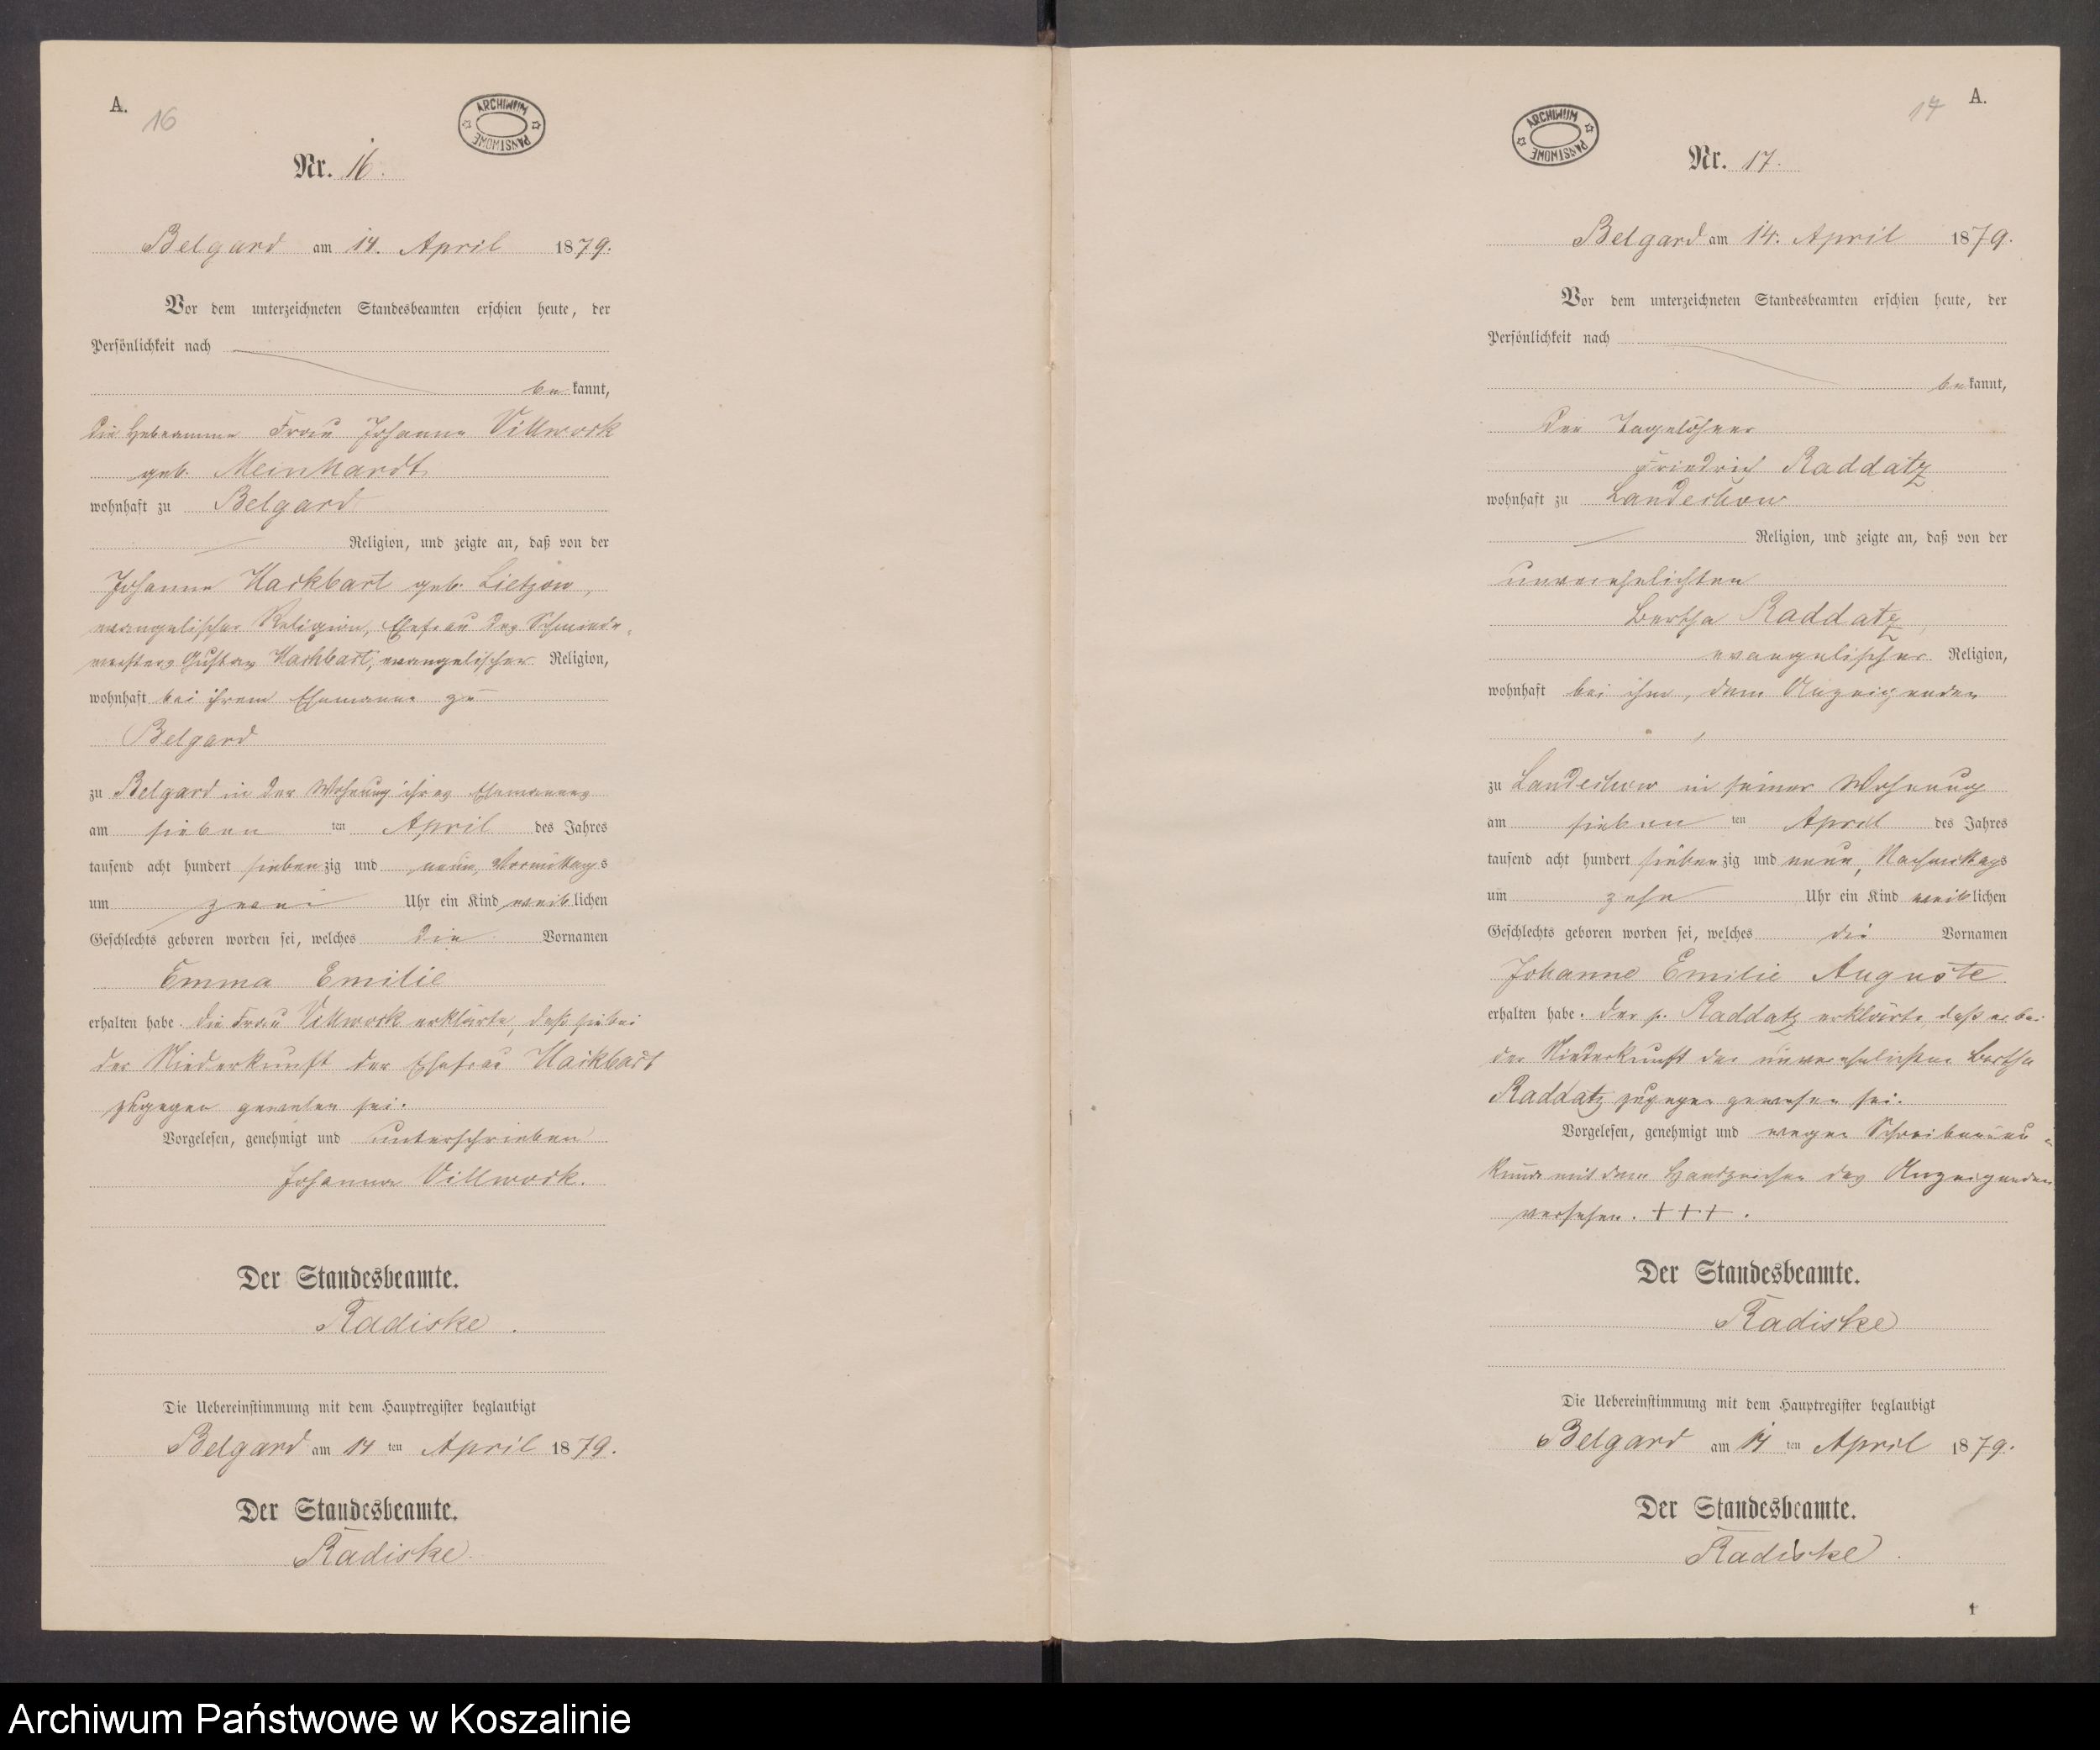 A.
16
ARCHIWUM PAŃSTWOWE
Nr. 16.
Belgard am 14. April 1879.
Vor dem unterzeichneten Standesbeamten erschien heute, der
Persönlichkeit nach
be kannt,
die Hebeamme Frau Johanna Villwock
geb. Meinhardt
wohnhaft zu Belgard
Religion, und zeigte an, daß von der
Johanne Hackbart geb. Lietzow,
evangelischer Religion, Ehefrau des Schmiede-
meisters Gustav Hackbart, evangelischer Religion,
wohnhaft bei ihrem Ehemanne zu
Belgard
zu Belgard in der Wohnung ihres Ehemannes
am sieben ten April des Jahres
tausend acht hundert siebenzig und neun, Vormittags
um zwei Uhr ein Kind weiblichen
Geschlechts geboren worden sei, welches die Vornamen
Emma Emilie
erhalten habe. Die Frau Villwock erklärte, daß sie bei
der Niederkunft der Ehefrau Hackbart
zugegen gewesen sei.
Vorgelesen, genehmigt und unterschrieben
Johanna Villwock.
Der Standesbeamte.
Radiske.
Die Uebereinstimmung mit dem Hauptregister beglaubigt
Belgard am 14 ten April 1879.
Der Standesbeamte.
Radiske
17
A.
ARCHIWUM PAŃSTWOWE
Nr. 17.
Belgard am 14. April 1879.
Vor dem unterzeichneten Standesbeamten erschien heute, der
Persönlichkeit nach
be kannt,
der Tagelöhner
Friedrich Raddatz
wohnhaft zu Landechow
Religion, und zeigte an, daß von der
unverehelichten
Bertha Raddatz,
evangelischer Religion,
wohnhaft bei ihm, dem Anzeigenden
zu Landechow in seiner Wohnung
am sieben ten April des Jahres
tausend acht hundert siebenzig und neun, Nachmittags
um zehn Uhr ein Kind weiblichen
Geschlechts geboren worden sei, welches die Vornamen
Johanne Emilie Auguste
erhalten habe. Der p. Raddatz erklärte, daß er bei
der Niederkunft der unverehelichten Bertha
Raddatz zugegen gewesen sei.
Vorgelesen, genehmigt und wegen Schreibensun-
kunde mit dem Handzeichen des Anzeigenden
versehen. +++.
Der Standesbeamte.
Radiske
Die Uebereinstimmung mit dem Hauptregister beglaubigt
Belgard am 14 ten April 1879.
Der Standesbeamte.
Radiske
Archiwum Państwowe w Koszalinie